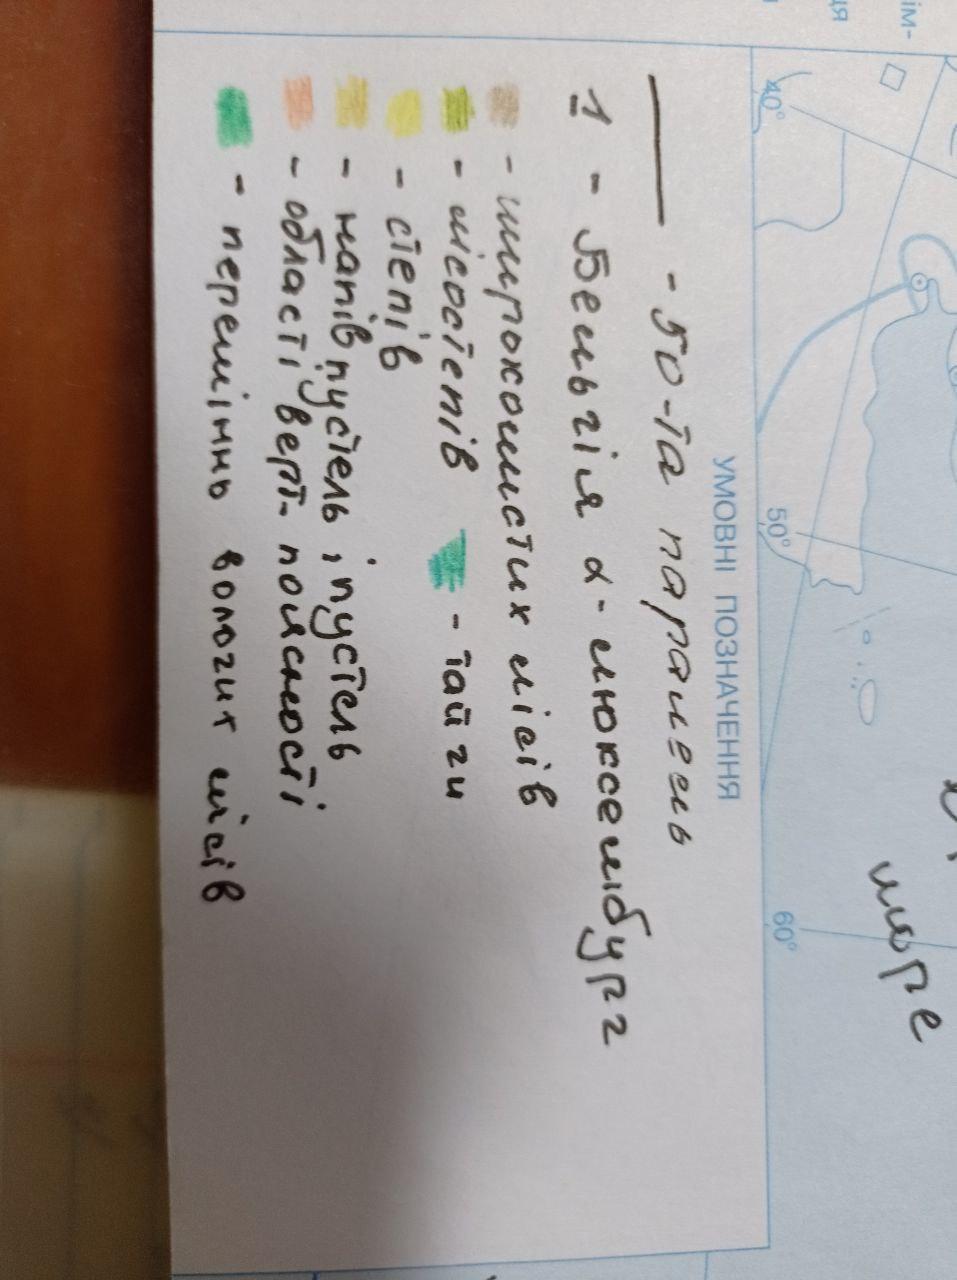 УМОВНІ ПОЗНАЧЕННЯ
- 50-та паралель
1 - Бельгія 2 - люксембург
- широколистих лісів
- лісостепів - тайги
- степів
- напівпустель і пустель
- області верт. поясності
- перемінно вологих лісів
море
40°
50°
60°
ім-
ця